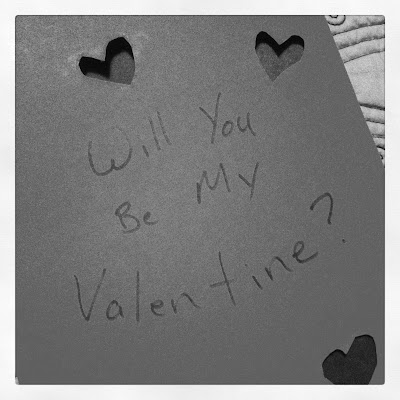 Will You
Be My
Valentine?